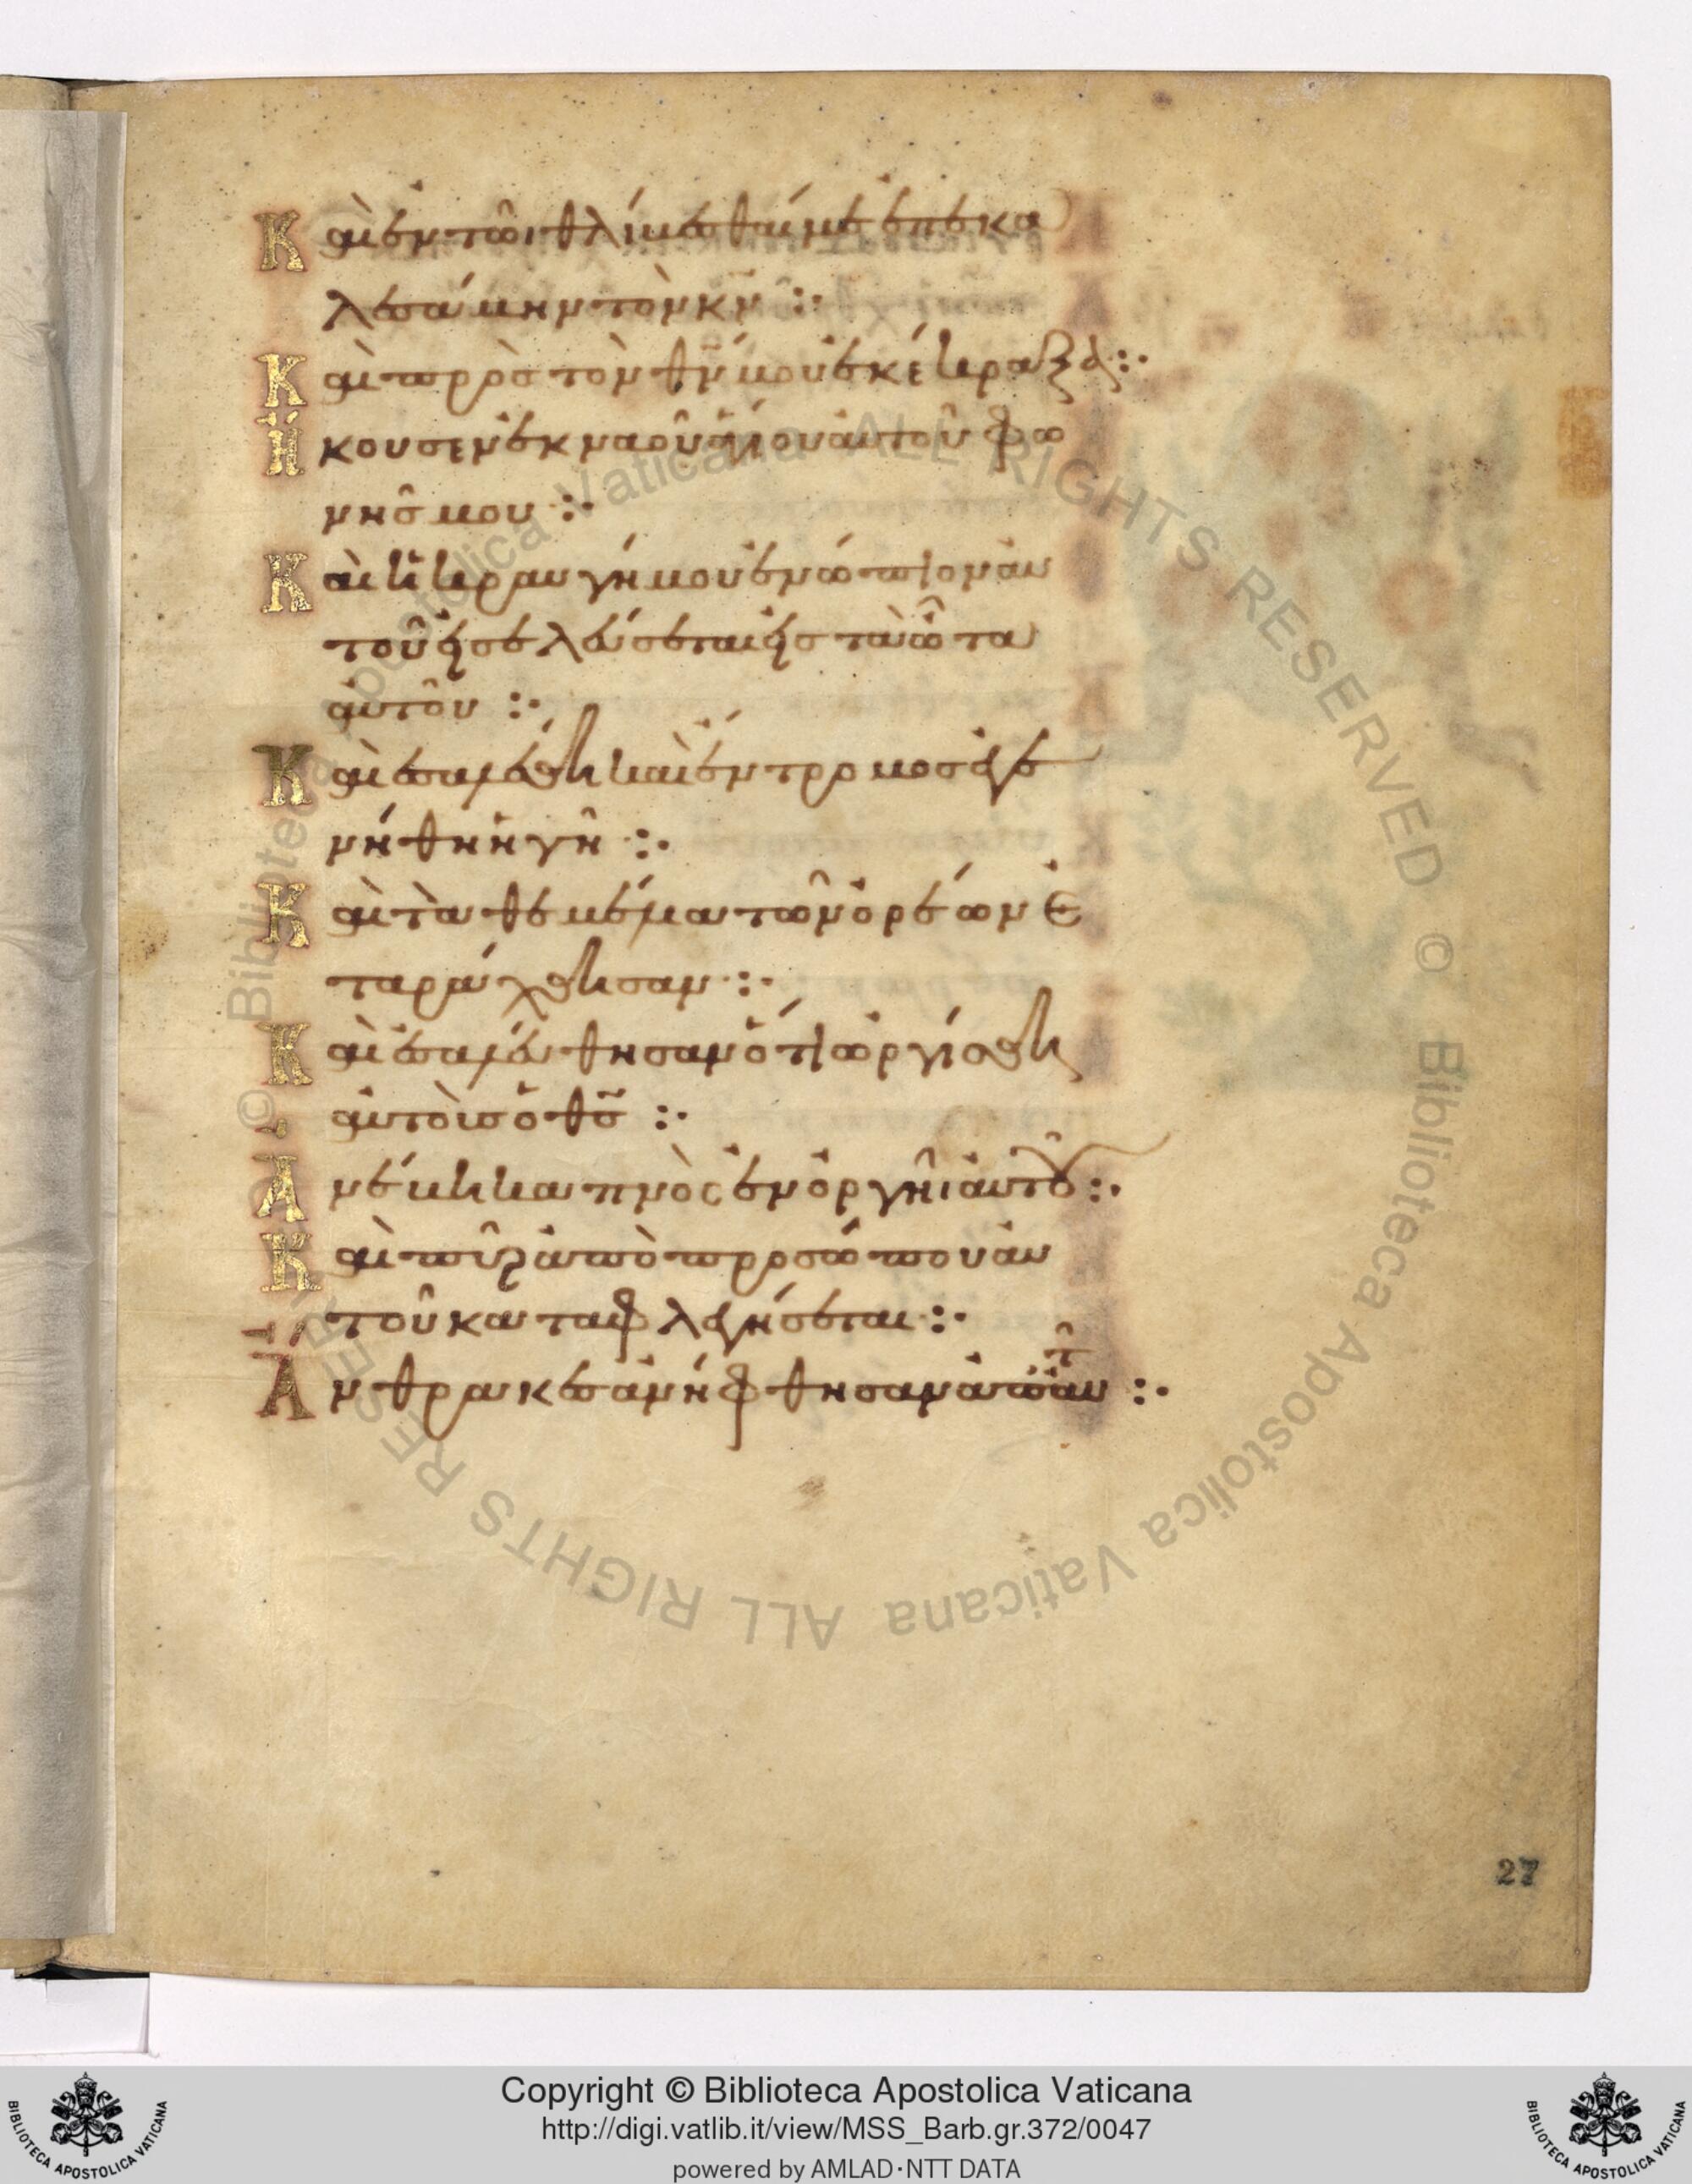 Καὶ ἐν τῶι θλίβεσθαί με ἐπεκα
λεσάμην τὸν κ̅ν̅ :·
Καὶ πρὸς τὸν θ̅ν̅ μου ἐκέκραξα :·
Ἤκουσεν ἐκ ναοῦ ἁγίου αὐτοῦ φω
νῆς μου :·
Καὶ ἡ κραυγή μου ἐνώπιον αὐ
τοῦ εἰσελεύσεται εἰς τὰ ὦτα
αὐτοῦ :·
Καὶ ἐσαλεύθη καὶ ἔντρομος ἐγε
νήθη ἡ γῆ :·
Καὶ τὰ θεμέλια τῶν ὀρέων ἐ
ταράχθησαν :·
Καὶ ἐσαλεύθησαν ὅτι ὠργίσθη
αὐτοῖς ὁ θ̅ς̅ :·
Ἀνέβη καπνὸς ἐν ὀργῆι αὐτοῦ :·
Καὶ πῦρ ἀπὸ προσώπου αὐ
τοῦ καταφλεγήσεται :·
Ἄνθρακες ἀνήφθησαν ἀπ' αὐτ :·
27
© Biblioteca Apostolica Vaticana ALL RIGHTS RESERVED © Biblioteca Apostolica Vaticana ALL RIGHTS RESERVED
Copyright © Biblioteca Apostolica Vaticana
http://digi.vatlib.it/view/MSS_Barb.gr.372/0047
powered by AMLAD·NTT DATA
BIBLIOTECA APOSTOLICA VATICANA
BIBLIOTECA APOSTOLICA VATICANA